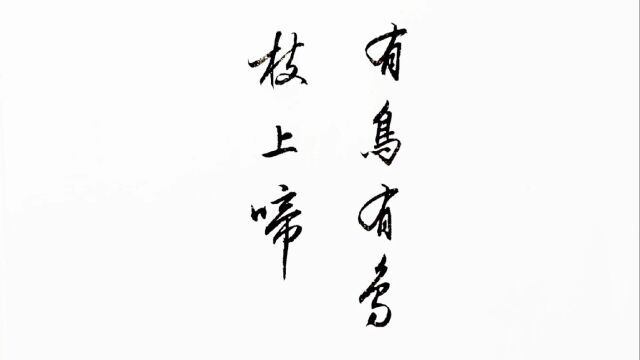 有鳥有鳥
枝上啼